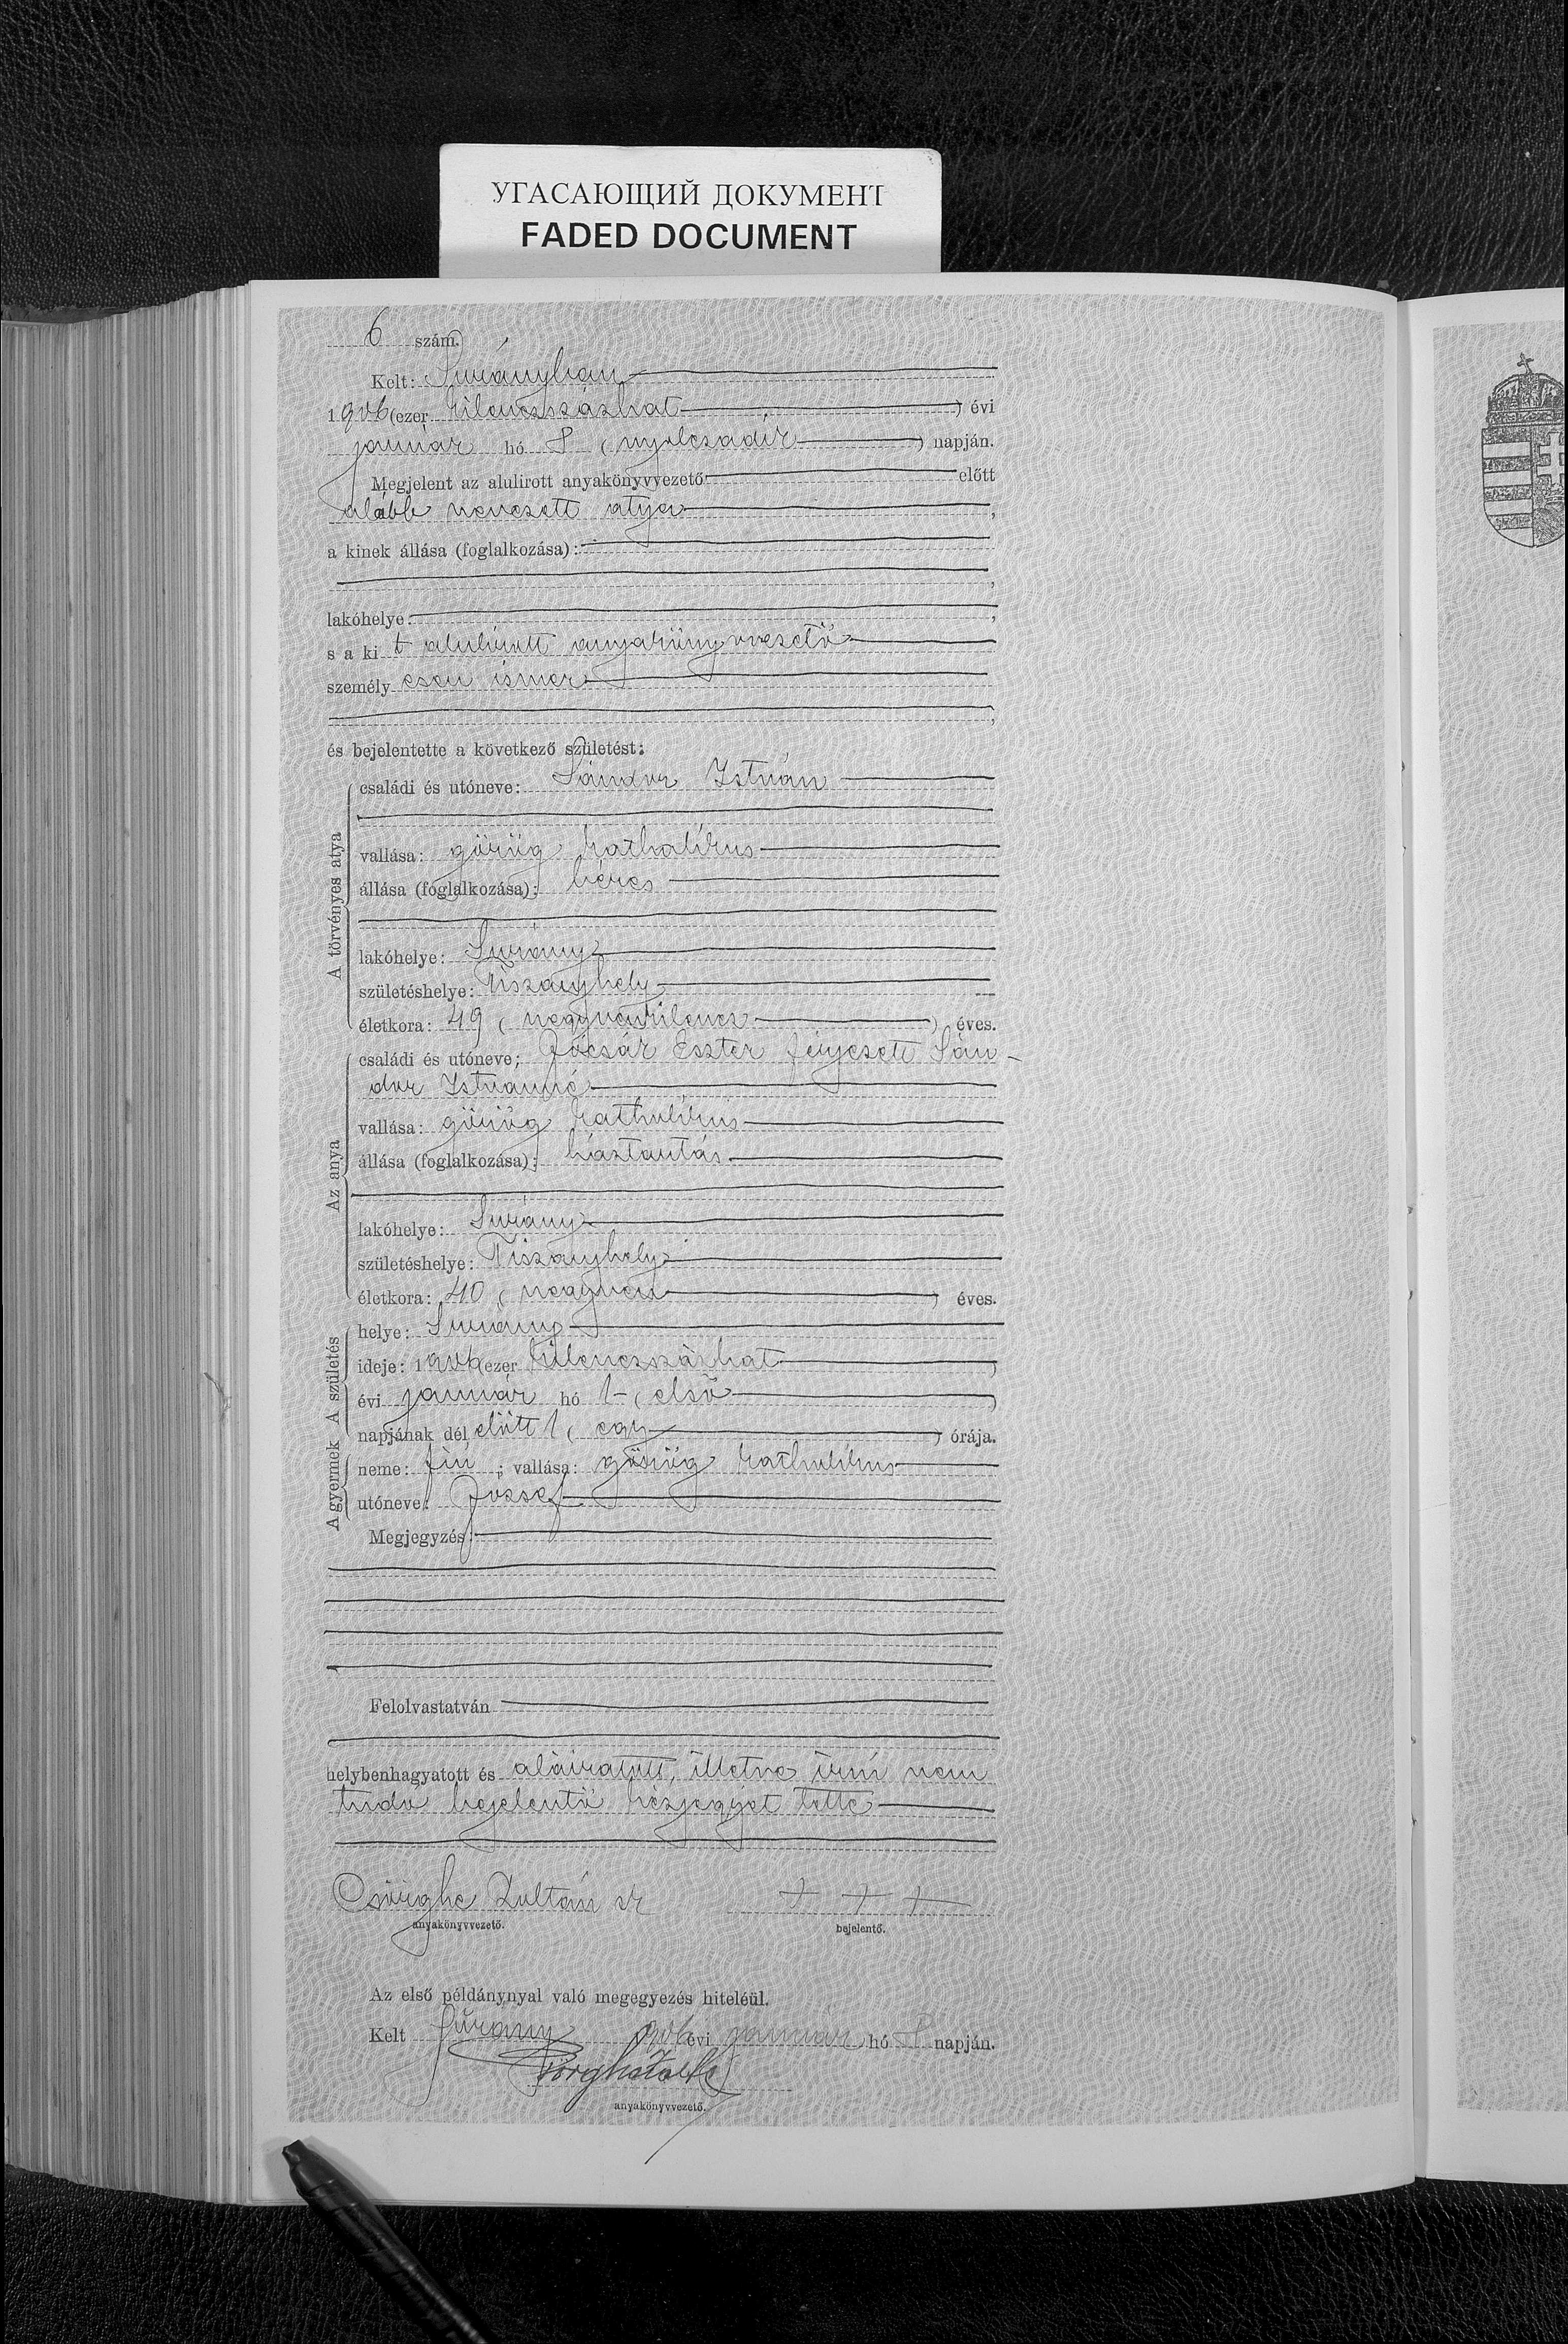 УГАСАЮЩИЙ ДОКУМЕНТ
FADED DOCUMENT
6 szám.
Kelt: Surányban
1906 (ezer kilenczszázhat) évi
január hó 8 (nyolczadik) napján.
Megjelent az alulirott anyakönyvvezető előtt
alább nevezett atya,
a kinek állása (foglalkozása):
,
lakóhelye: ,
s a kit alulírott anyakönyvvezető
személyesen ismer
,
és bejelentette a következő születést:
A törvényes atya
családi és utóneve: Sándor István
vallása: görög katholikus
állása (foglalkozása): béres
lakóhelye: Surány
születéshelye: Tiszanyhely
életkora: 49 (negyvenkilencz) éves.
Az anya
családi és utóneve: Jócsár Eszter férjezett Sán-
dor Istvánné
vallása: görög katholikus
állása (foglalkozása): háztartás
lakóhelye: Surány
születéshelye: Tiszanyhely
életkora: 40 (negyven) éves.
A születés
helye: Surány
ideje: 1906 (ezer kilenczszázhat)
évi január hó 1 (első)
napjának délelőtt 1 (egy) órája.
A gyermek
neme: fiú; vallása: görög katholikus
utóneve: József
Megjegyzés:
Felolvastatván
helybenhagyatott és aláiratott, illetve írni nem
tudó bejelentő kézjegyét tette
Csörghe Zoltán sk
+ + +
anyakönyvvezető.
bejelentő.
Az első példánynyal való megegyezés hiteléül.
Kelt Surány 1906 évi január hó 8 napján.
anyakönyvvezető.